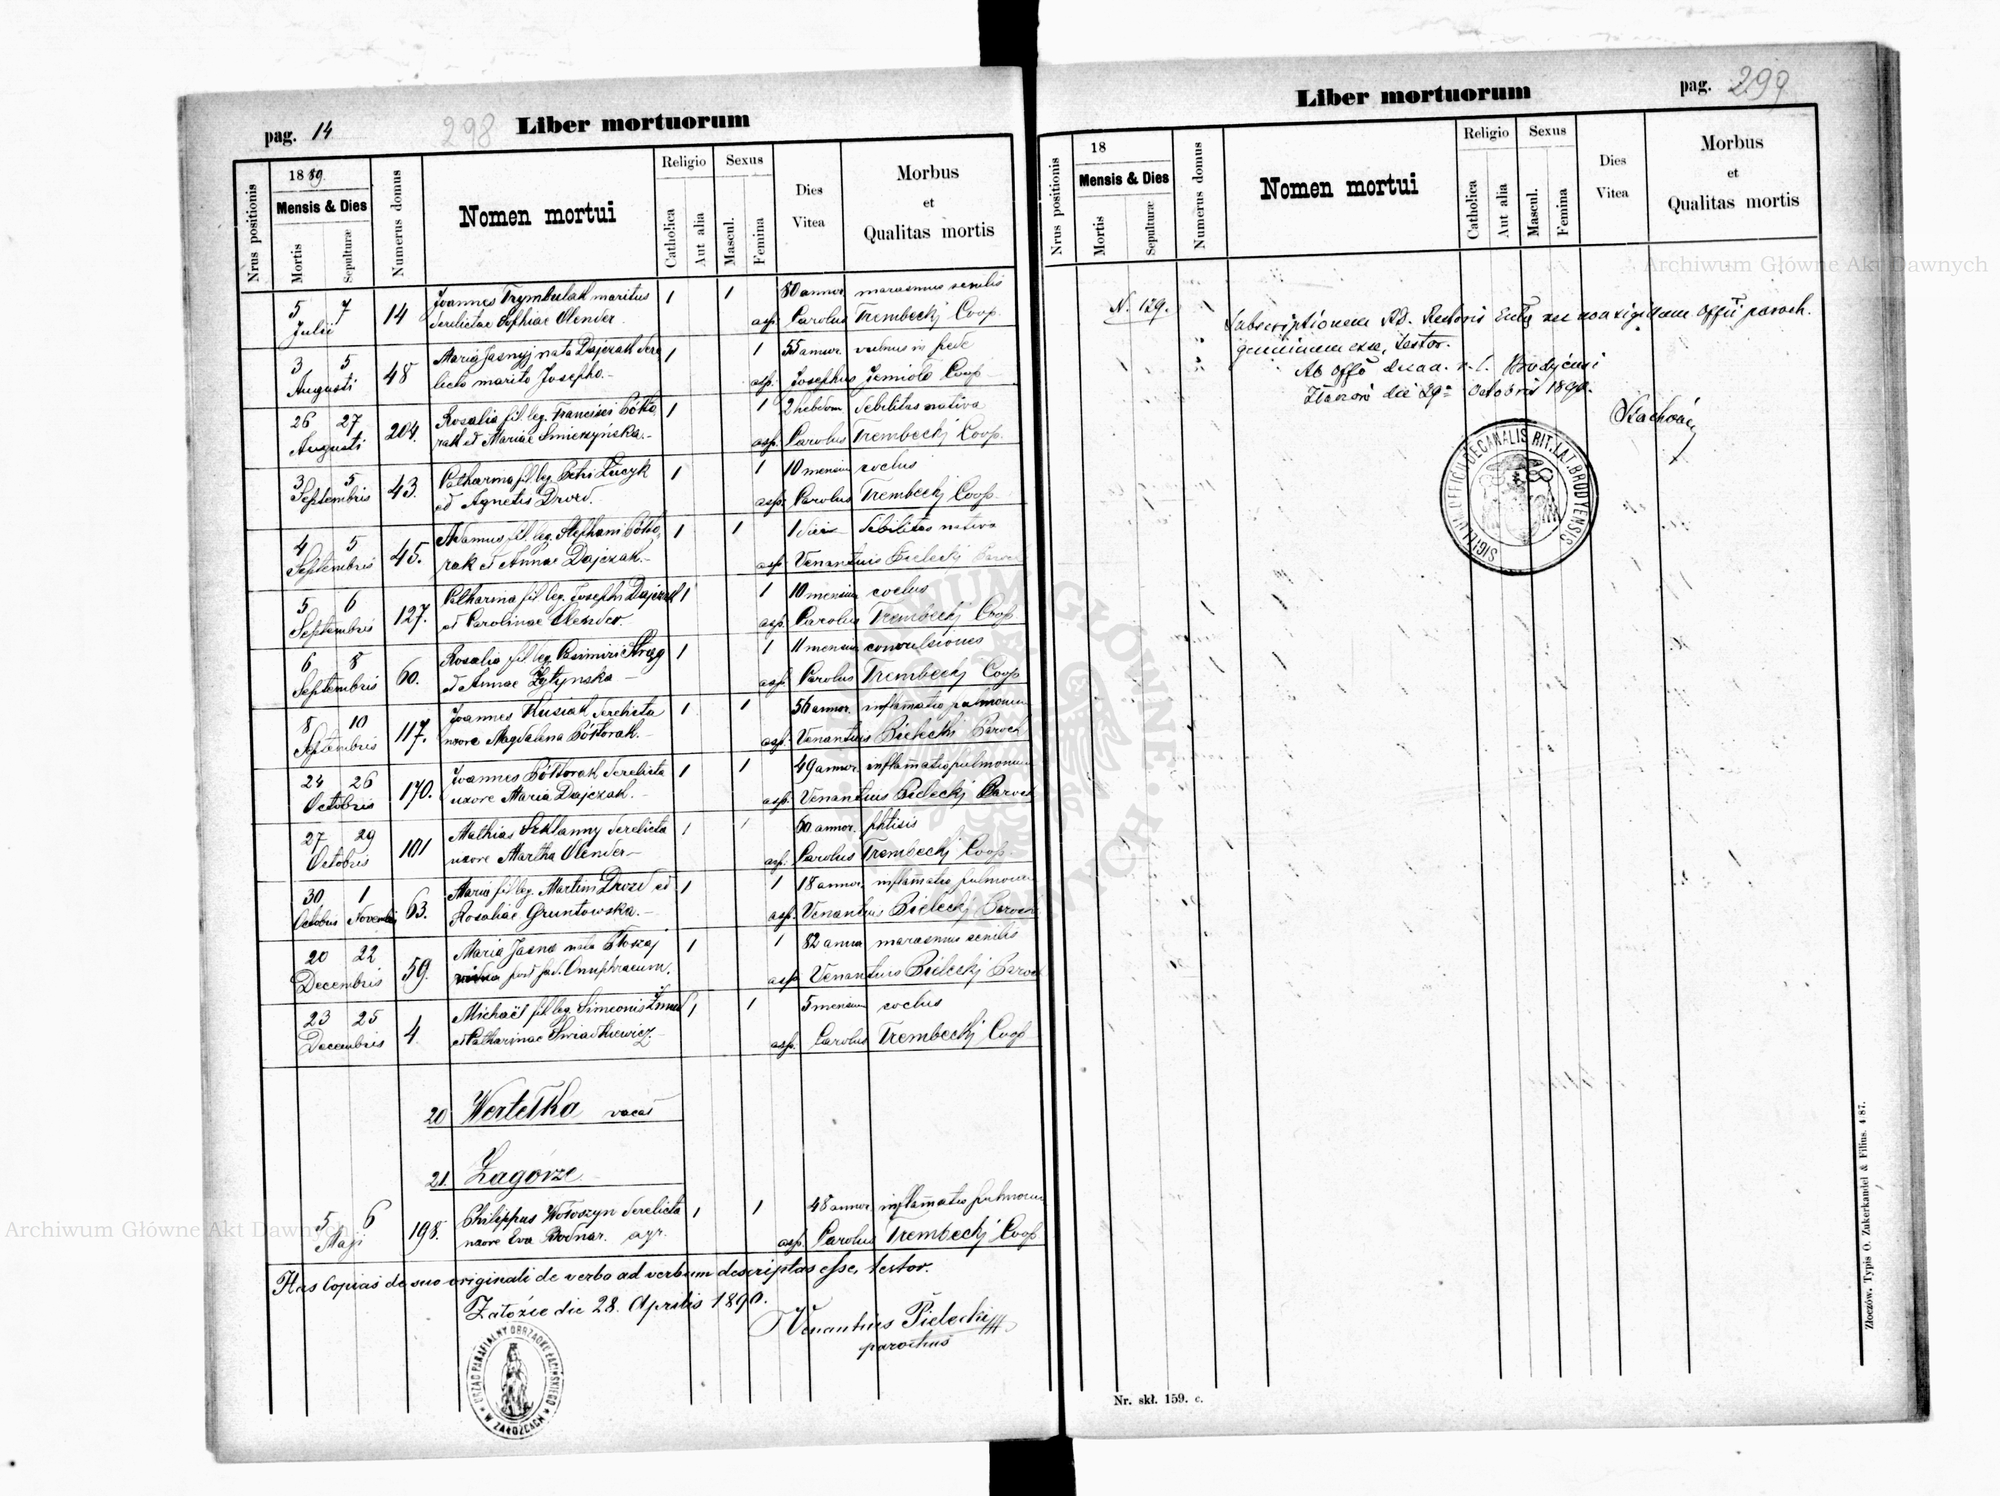 pag. 14
298
Liber mortuorum
Nrus positionis
1889.
Mensis & Dies
Mortis
Sepulturæ
Numerus domus
Nomen mortui
Religio
Catholica
Aut alia
Sexus
Mascul.
Femina
Dies
Vitea
Morbus
et
Qualitas mortis
5 7 14 Joannes Trymbulak maritus 1 1 80 annor. marasmus senilis
Julii derelictae Sophiae Olender asp. Carolus Trembecki Coop.
3 5 48 Maria Jasnyj nata Dajczak dere 1 1 55 annor. vulnus in pede
Augusti licto marito Josepho.- asp. Josephus Jemioło Coop.
26 27 204. Rosalia fil. leg. Francisci Półto 1 1 2 hebdom. debilitas nativa
Augusti rak et Mariae .- asp. Carolus Trembecki Coop.
3 5 43. Catharina fil. leg. Petri Łuczyk 1 1 10 mensium coclus
Septembris et Agnetis Drozd. asp. Carolus Trembecki Coop.
4 5 45. Adamus fil. leg. Stephani Półto 1 1 1 diei debilitas nativa
Septembris rak et Annae Dajczak.- asp. Venantius Pielecki Paroch
5 6 127. Catharina fil. leg. Josephi Dajczak 1 1 10 mensium coclus
Septembris et Carolinae Olender asp. Carolus Trembecki Coop
6 8 60. Rosalia fil. leg. Casimiri 1 1 11 mensium convulsiones
Septembris et Annae Żytynska - asp. Carolus Trembecki Coop
8 10 117. Joannes Kusiak derelicta 1 1 56 annor. inflamatio pulmonum
Septembris uxore Magdalena Półtorak.- asp. Venantius Pielecki Paroch
24 26 170. Joannes Półtorak derelicta 1 1 49 annor. inflamatio pulmonum
Octobris uxore Maria Dajczak.- asp. Venantius Pielecki Paroch
27 29 101 Mathias Szklanny derelicta 1 1 60 annor. phtisis
Octobris uxore Martha Olender- asp. Carolus Trembecki Coop
30 1 63. Maria fil. leg. Martini Drozd et 1 1 18 annor. inflamatio pulmonum
Octobris Novembris Rosaliae Gruntowska.- asp. Venantius Pielecki Paroch
20 22 59. Maria Jasna nata 1 1 82 annor marasmus senilis
Decembris post def. Onuphraeum. asp Venantius Pielecki Paroch
23 25 4 Michaël fil. leg. Simeonis 1 1 5 mensium coclus
Decembris et Catharinae Swiadkiewicz.- asp. Carolus Trembecki Coop
20 Wertełka vacat
21. Zagórze
5 6 198. Philippus Wołoszyn derelicta 1 1 48 annor. inflamatio pulmonum
Maji uxore Eva Bodnar. agr. asp. Carolus Trembecki Coop
Has Copias de suo originali de verbo ad verbum descriptas esse, testor.
Załoźce die 28. Aprilis 1890.
Venantius Pielecki
parochus
URZĄD PARAFIALNY OBRZĄDKU ŁACIŃSKIEGO
W ZAŁOŹCACH
Liber mortuorum
pag. 299
Nrus positionis
18
Mensis & Dies
Mortis
Sepulturæ
Numerus domus
Nomen mortui
Religio
Catholica
Aut alia
Sexus
Mascul.
Femina
Dies
Vitea
Morbus
et
Qualitas mortis
N. 129. Subscriptionem RD. Rectoris Ecclae nec non sigillum Offii paroch.
genuinum esse, testor.
Ab Offo decan. r. l. Brodycensi
die 29a Octobris 1890.
SIGILLUM OFFICII DECANALIS RIT. LAT. BRODYENSIS
Nr. skł. 159. c.
Złoczów. Typis O. Zukerkandel & Filius. 4/87.
Archiwum Główne Akt Dawnych
Archiwum Główne Akt Dawnych
ARCHIWUM GŁÓWNE AKT DAWNYCH